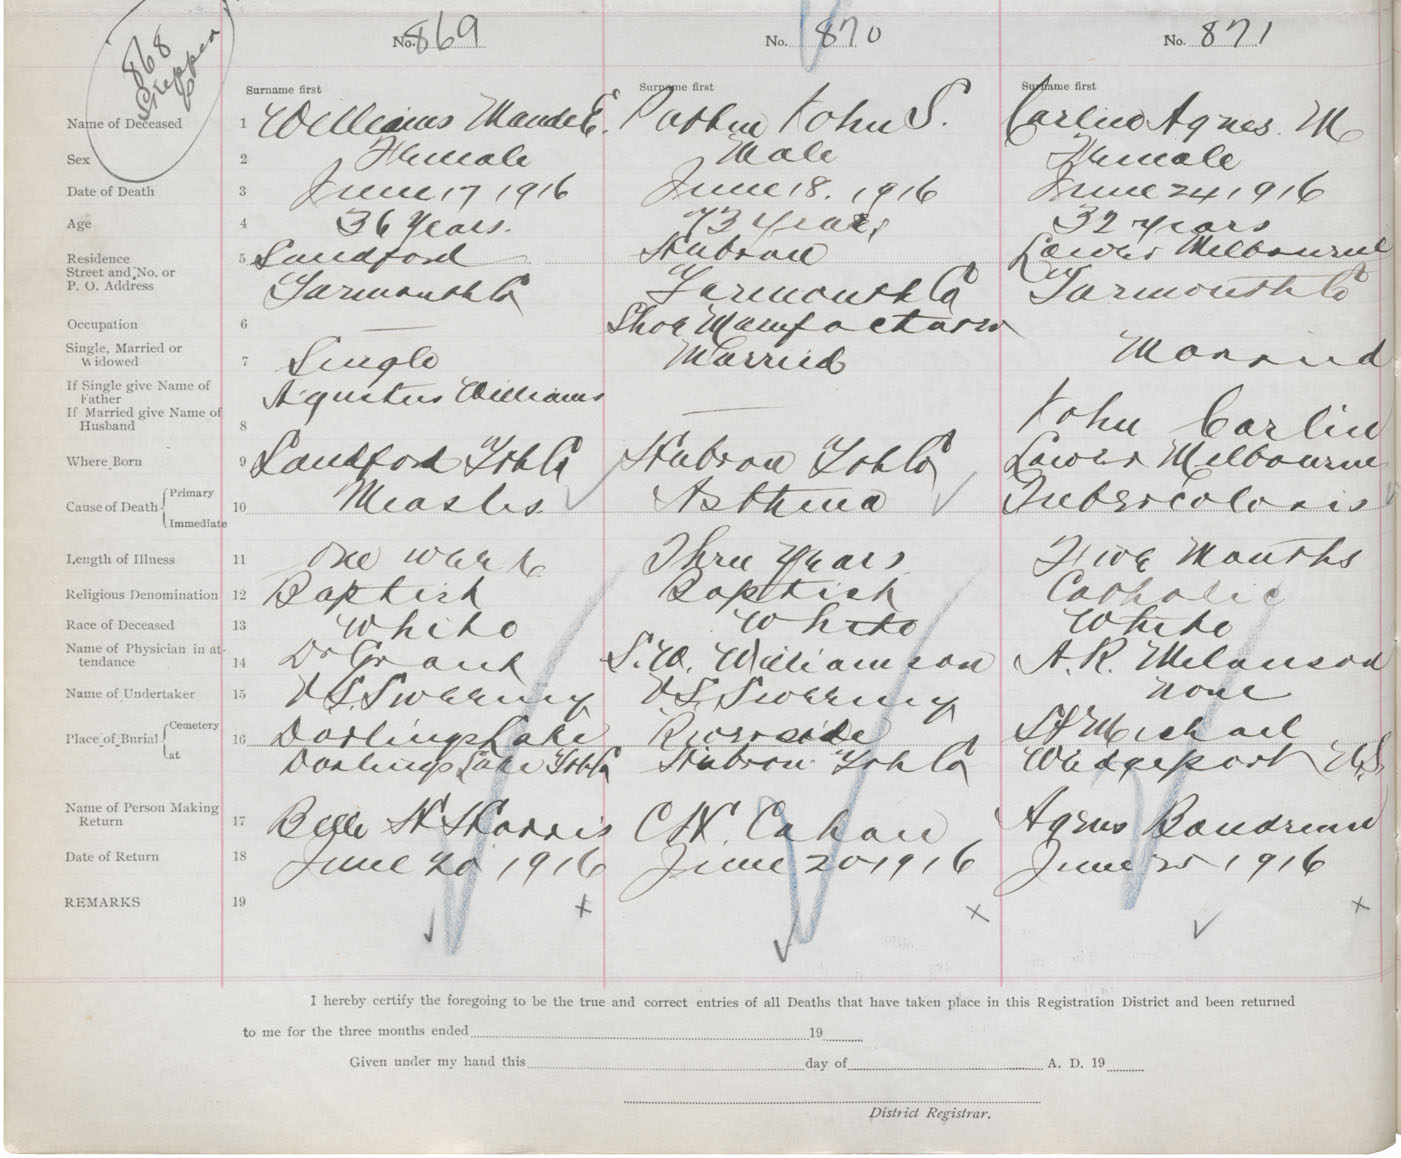 868
Skipped
No. 869 No. 870 No. 871
Surname first Surname first Surname first
Name of Deceased 1 Williams Maude E. John S. Carlin Agnes. M
Sex 2 Female Male Female
Date of Death 3 June 17 1916 June 18. 1916 June 24 1916
Age 4 36 Years. 73 years 32 years
Residence 5 Sandford Hebron Lower Melbourne
Street and No. or
P. O. Address Yarmouth Co Yarmouth Co Yarmouth Co
Occupation 6 — Shoe Manufacturer
Single, Married or
Widowed 7 Single Married Married
If Single give Name of
Father Agustus Williams
If Married give Name of
Husband 8 — John Carlin
Where Born 9 Sandford Yrh Co Hebron Yrh Co Lower Melbourne
Cause of Death { Primary
Immediate 10 Measles. Asthma Tubercolosis
Length of Illness 11 One week Three Years Five Months
Religious Denomination 12 Baptist Baptist Catholic
Race of Deceased 13 White White White
Name of Physician in at-
tendance 14 Dr Grant S. W. Williamson A. R. Melanson
Name of Undertaker 15 V S Sweeny V S. Sweeny None
Place of Burial { Cemetery
at 16 Darlings Lake Riverside St Michael
Darlings Lake Yrh Co Hebron Yrh Co Wedgeport N.S.
Name of Person Making
Return 17 Belle H Harris C H. Cahan Agnes
Date of Return 18 June 20 1916 June 20 1916 June 25 1916
REMARKS 19 x x x
I hereby certify the foregoing to be the true and correct entries of all Deaths that have taken place in this Registration District and been returned
to me for the three months ended 19
Given under my hand this day of A. D. 19
District Registrar.